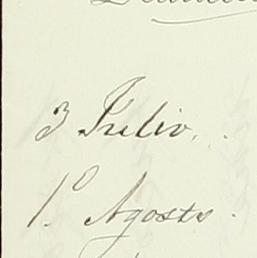 3 Julio.
1º Agosto.